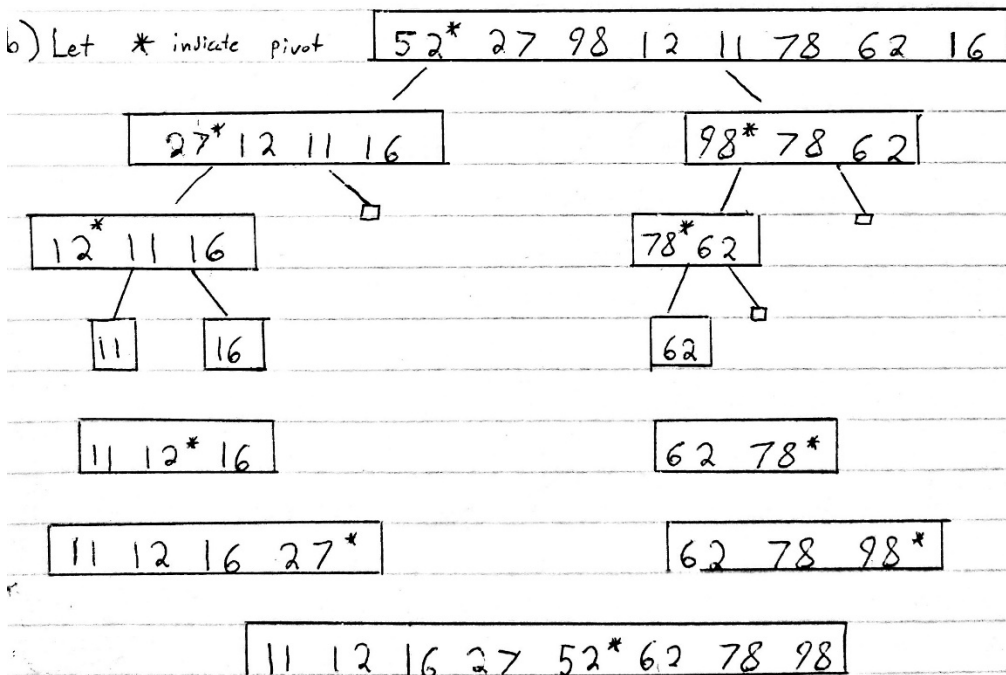 b) Let * indicate pivot 52* 27 98 12 11 78 62 16
27* 12 11 16 98* 78 62
12* 11 16 78* 62
11 16 62
11 12* 16 62 78*
11 12 16 27* 62 78 98*
11 12 16 27 52* 62 78 98